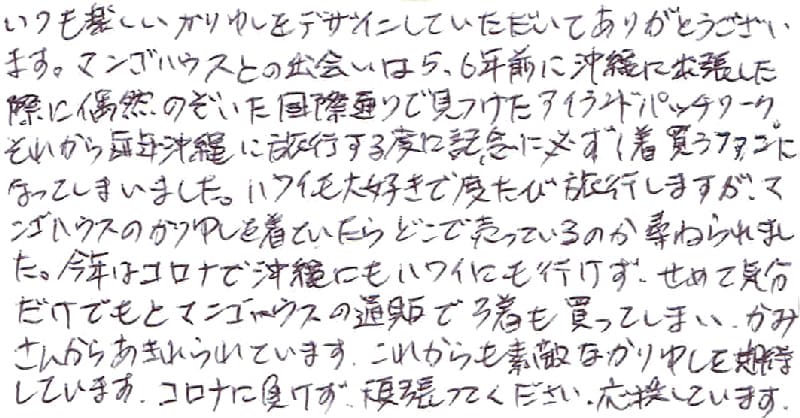 いつも楽しいかりゆしをデザインしていただいてありがとうござい
ます。マンゴハウスとの出会いは5、6年前に沖縄に出張した
際に偶然のぞいた国際通りで見つけたアイランドパッチワーク。
それから毎年沖縄に旅行する度に記念に必ず1着買うファンに
なってしまいました。ハワイも大好きで度たび旅行しますが、マ
ンゴハウスのかりゆしを着ていたらどこで売っているのか尋ねられまし
た。今年はコロナで沖縄にもハワイにも行けず、せめて気分
だけでもとマンゴハウスの通販で3着も買ってしまい、かみ
さんからあきれられています。これからも素敵なかりゆしを期待
しています。コロナに負けず、頑張ってください。応援しています。